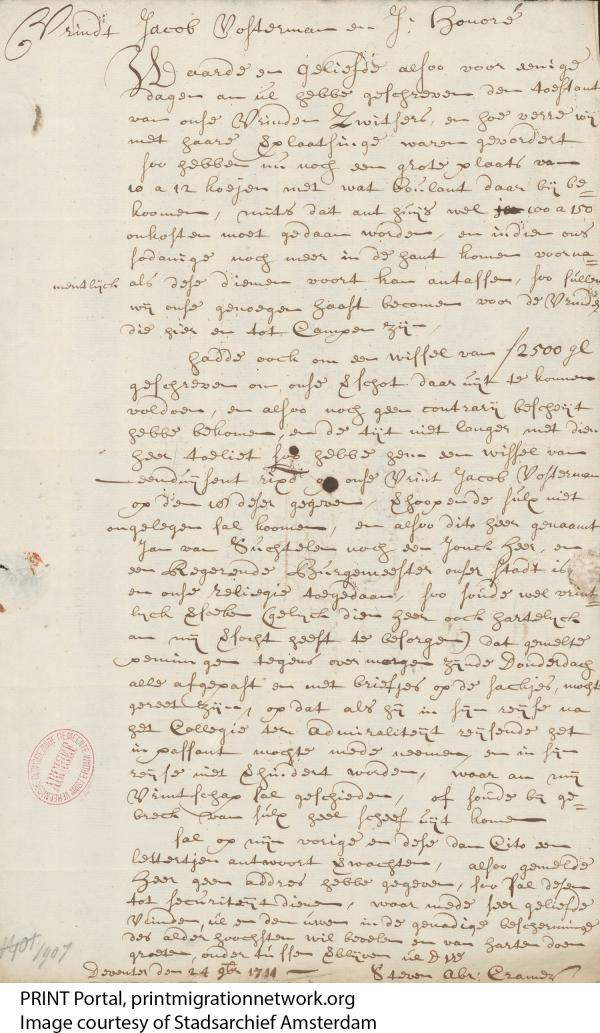 Vrindt Jacob Vosterman en J: Honoré
Waarde en geliefde alsoo voor eenige
dagen an ul hebbe geschreven den toestant
van onse Vrinden Zwitsers, en hoe verre wij
met haare plaatsinge waren gevordert
soo hebben nu noch een grote plaats van
10 a 12 koejen met wat bou lant daar bij be=
koomen, mits dat ant huijs wel 100 a 150
onkosten moet gedaan worden, en indien ons
sodanige noch meer in de hant komen voorna=
mentlijck als dese diemen voort kan antassen, soo sullen
wij onse genoegen haast becomen voor de Vrinden
die hier en tot Campen zijn,
hadde oock om een wissel van f 2500 gl
geschreven om onse Eschot daar uijt te konnen
voldoen, en alsoo noch geen contrarij bescheijt
hebbe bekomen, en de tijt niet langer met dien
heer toeliet hebbe hem een wissel van
eenduijsent rixd op onse Vrint Jacob Vosterman
op den 16 deser gegeven, hoopende sulx niet
ongelegen sal koomen, en alsoo dito heer genaamt
Jan van Suchtelen noch een Jonck heer, en
een Regerende Burgemeester onser stadt is
en onse religie toegedaan, soo soude wel vrint
lijck (gelijck dien heer oock hartelijck
an mij heeft te besorgen) dat gemelte
penningen tegens over morgen zijnde Donderdach
alle afgepast en met briefjes op de sackjes, mocht
gereet zijn, op dat als hij in sijn reijse na
het Collegie ter admiraliteijt reijsende het
in passant mochte mede neemen, en in sijn
reijse niet worden, waar an mij
Vrintschap sal geschieden, of soude bij ge=
breck van sulx heel scheef uijt komen
sal op mijn vorige en dese dan Cito een
lettertjen antwoort verwachten, alsoo gemelde
Heer geen addres hebbe gegeven, soo sal desen
tot securiteijt dienen, waar mede seer geliefde
Vrinden, ul en den uwen in de genadige bescherminge
des alder hoochsten wil bevelen en van harten doen
groeten, onder tussen verblijven ul
Deventer den 24 9br 1711 — Steven Abr: Cramer
1907
ARCHIEF
PRINT Portal, printmigrationnetwork.org
Image courtesy of Stadsarchief Amsterdam